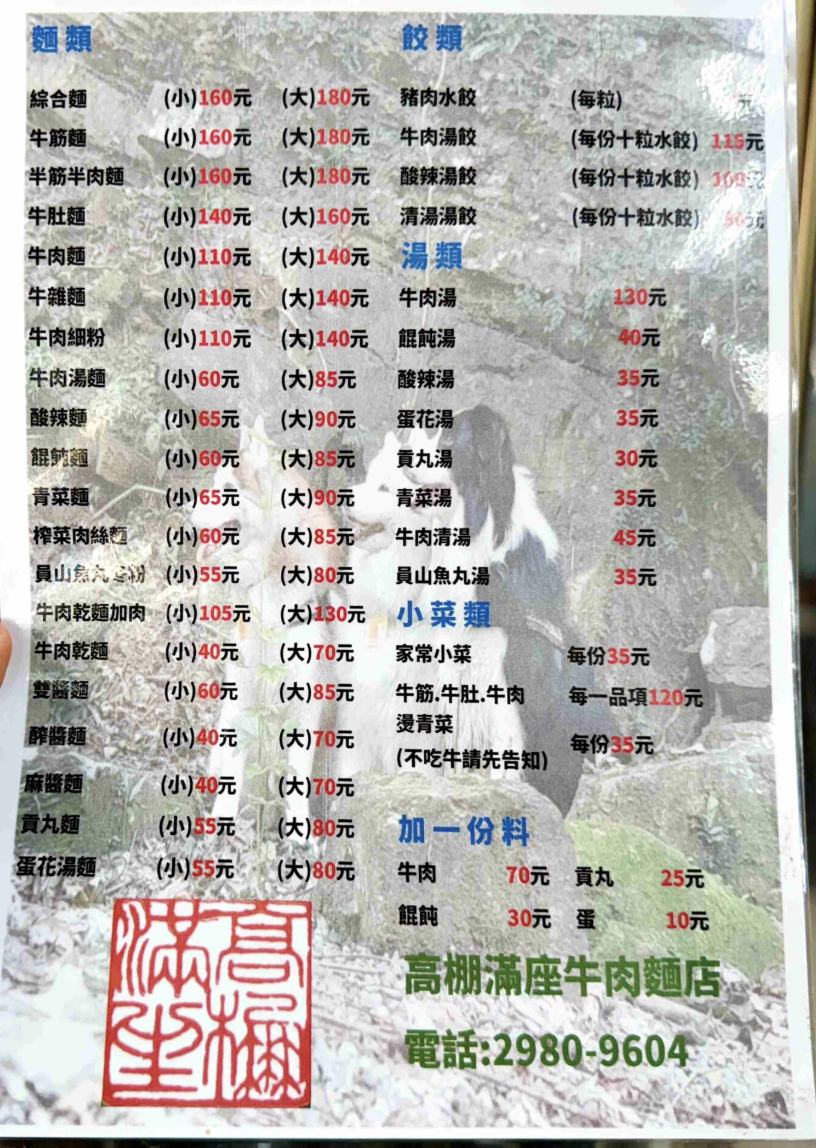 麵類
綜合麵 (小)160元 (大)180元
牛筋麵 (小)160元 (大)180元
半筋半肉麵 (小)160元 (大)180元
牛肚麵 (小)140元 (大)160元
牛肉麵 (小)110元 (大)140元
牛雜麵 (小)110元 (大)140元
牛肉細粉 (小)110元 (大)140元
牛肉湯麵 (小)60元 (大)85元
酸辣麵 (小)65元 (大)90元
餛飩麵 (小)60元 (大)85元
青菜麵 (小)65元 (大)90元
榨菜肉絲麵 (小)60元 (大)85元
員山魚丸冬粉 (小)55元 (大)80元
牛肉乾麵加肉 (小)105元 (大)130元
牛肉乾麵 (小)40元 (大)70元
雙醬麵 (小)60元 (大)85元
醡醬麵 (小)40元 (大)70元
麻醬麵 (小)40元 (大)70元
貢丸麵 (小)55元 (大)80元
蛋花湯麵 (小)55元 (大)80元
餃類
豬肉水餃 (每粒) 元
牛肉湯餃 (每份十粒水餃) 115元
酸辣湯餃 (每份十粒水餃) 100元
清湯湯餃 (每份十粒水餃) 元
湯類
牛肉湯 130元
餛飩湯 40元
酸辣湯 35元
蛋花湯 35元
貢丸湯 30元
青菜湯 35元
牛肉清湯 45元
員山魚丸湯 35元
小菜類
家常小菜 每份35元
牛筋.牛肚.牛肉 每一品項120元
燙青菜 每份35元
(不吃牛請先告知)
加一份料
牛肉 70元 貢丸 25元
餛飩 30元 蛋 10元
高棚滿座牛肉麵店
電話:2980-9604
高棚
滿坐